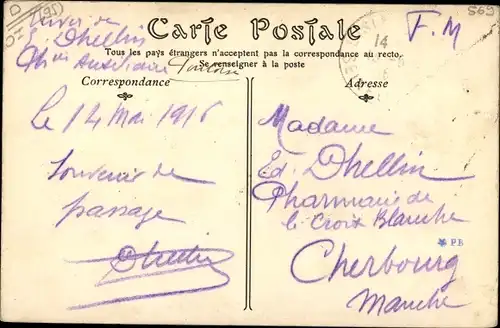 Envoi de
E. Dhellin
Phien Auxiliaire
Carte Postale
F.M
Tous les pays étrangers n'acceptent pas la correspondance au recto.
Se renseigner à la poste
Correspondance
Adresse
14
Le 14 Mai 1916
Souvenir de
passage
Dhellin
Madame
Ed. Dhellin
Pharmacie de
la Croix Blanche
PB
Cherbourg
Manche